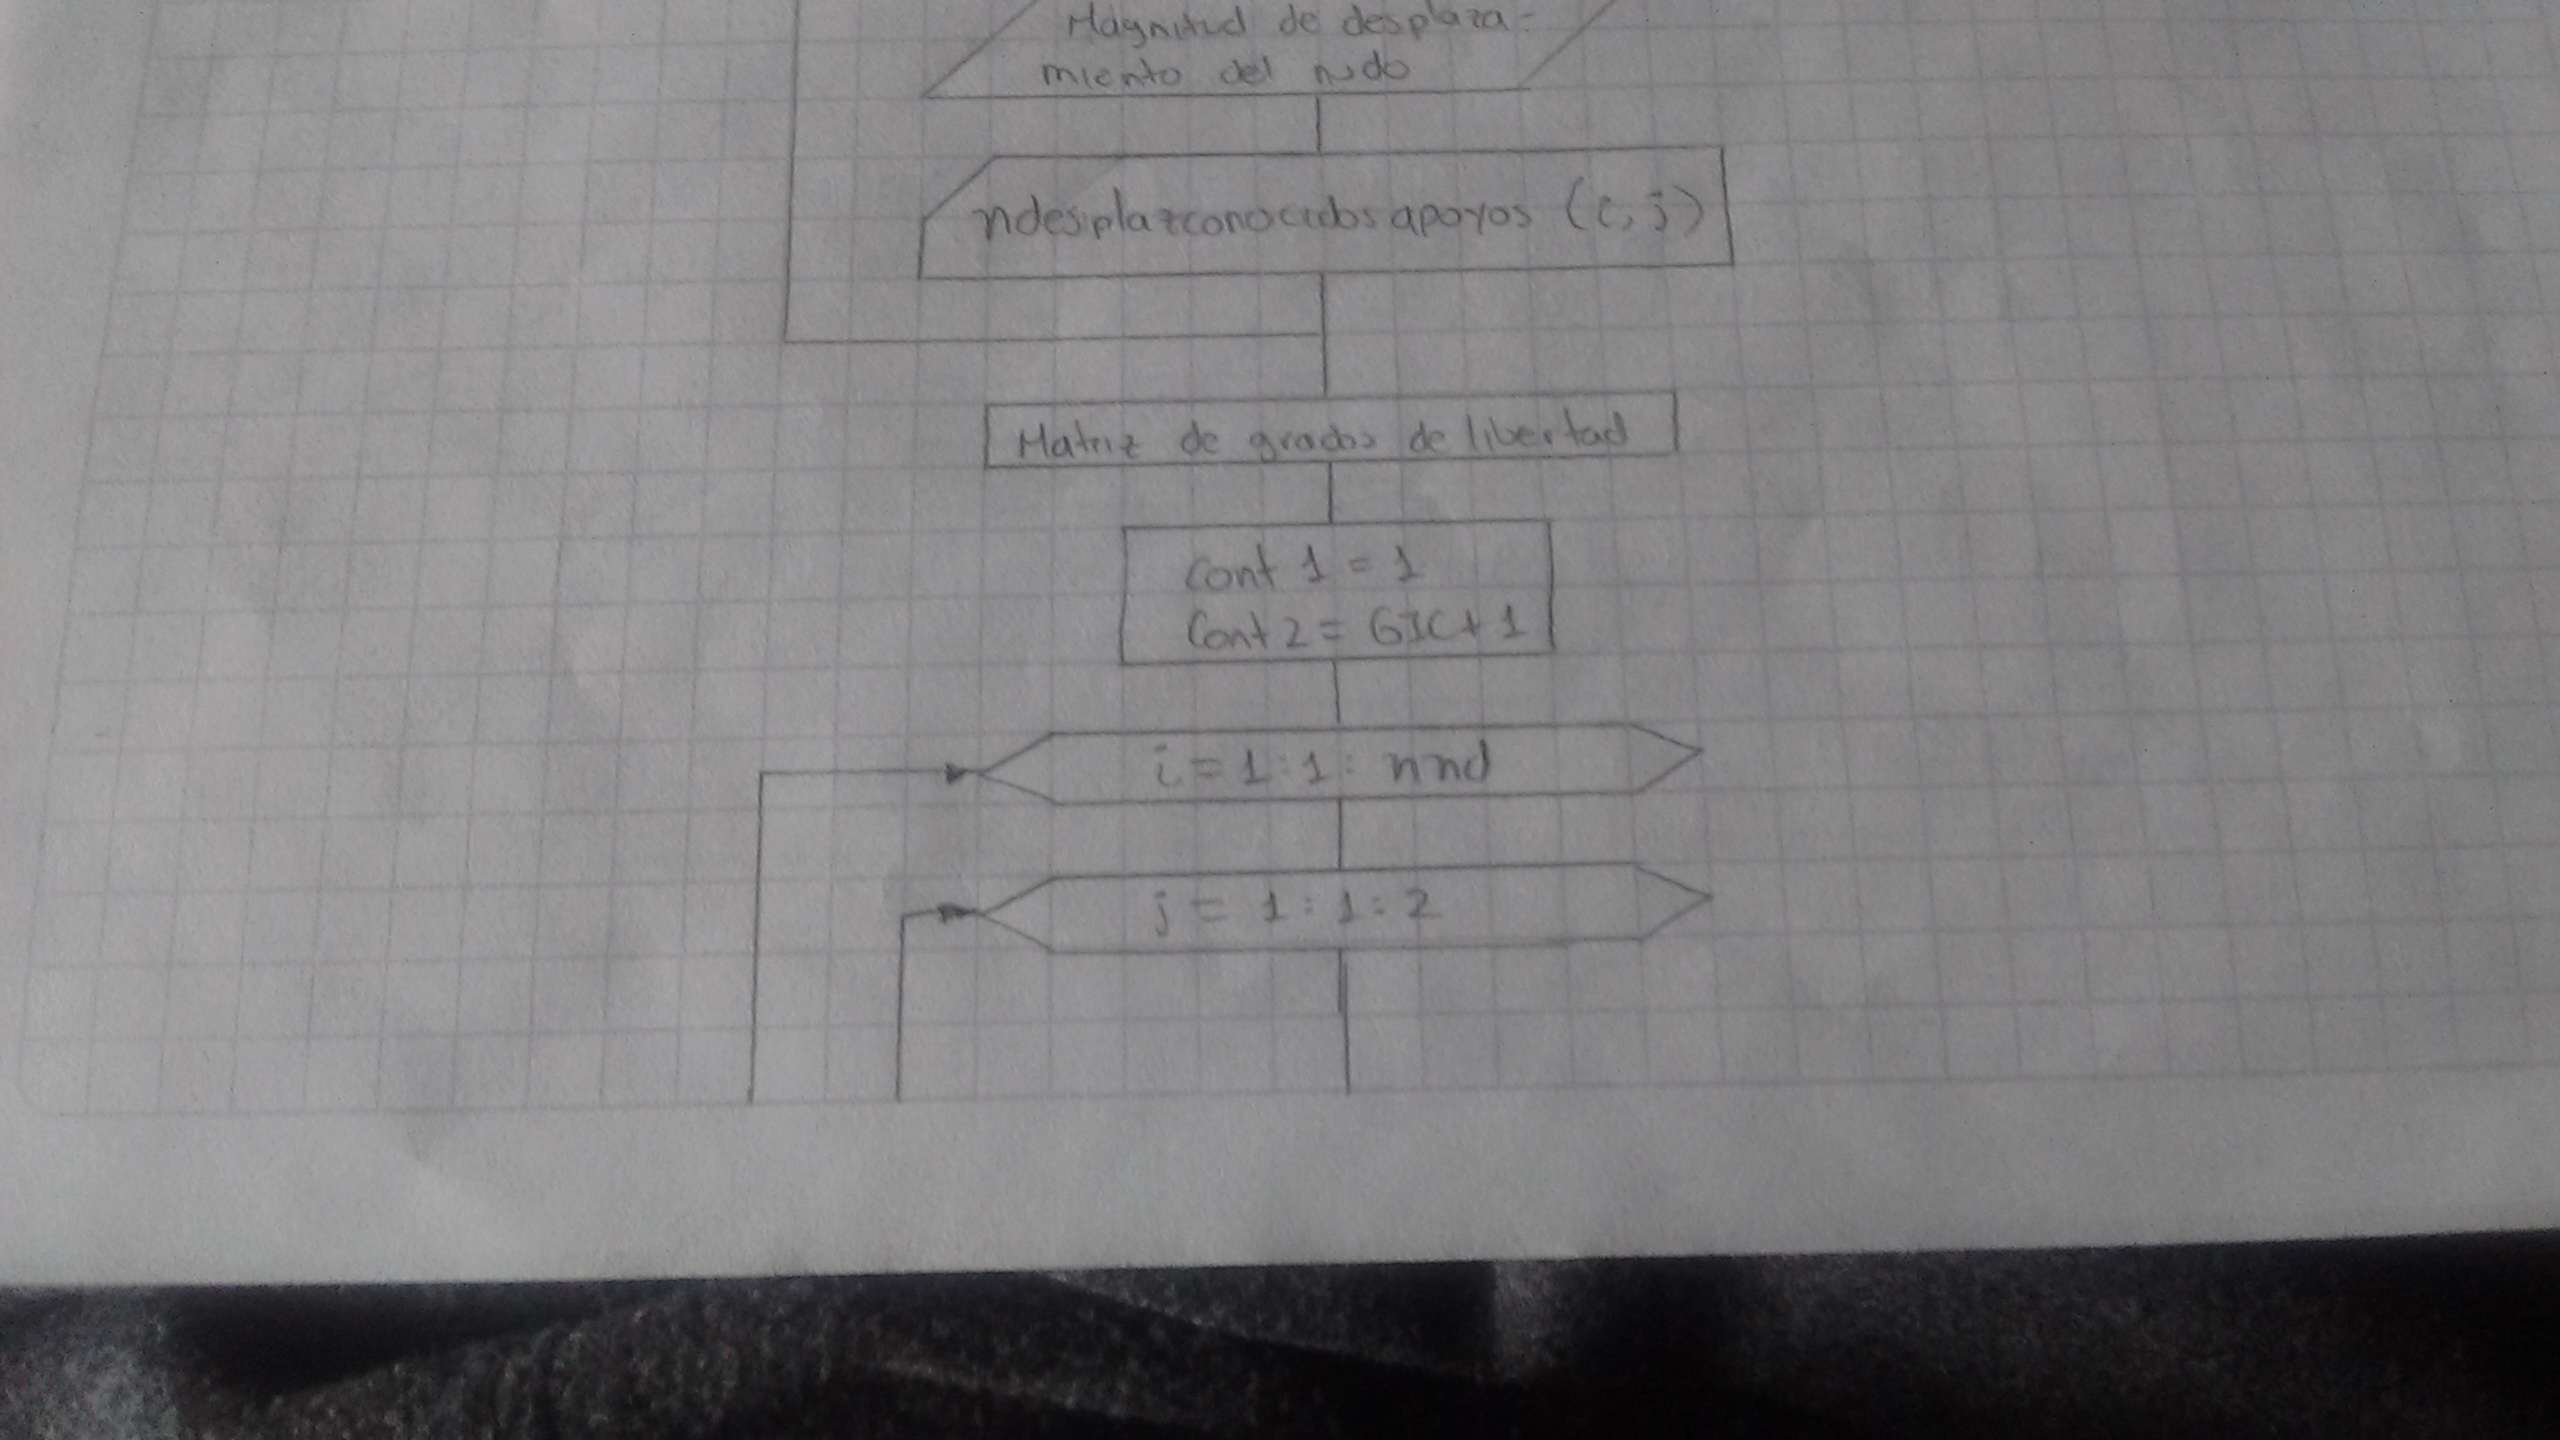 Magnitud de desplaza-
miento del nudo
ndesplazconocidosapoyos (i,j)
Matriz de grados de libertad
Cont 1 = 1
Cont 2 = GIC + 1
i = 1 : 1 : nnd
j = 1 : 1 : 2